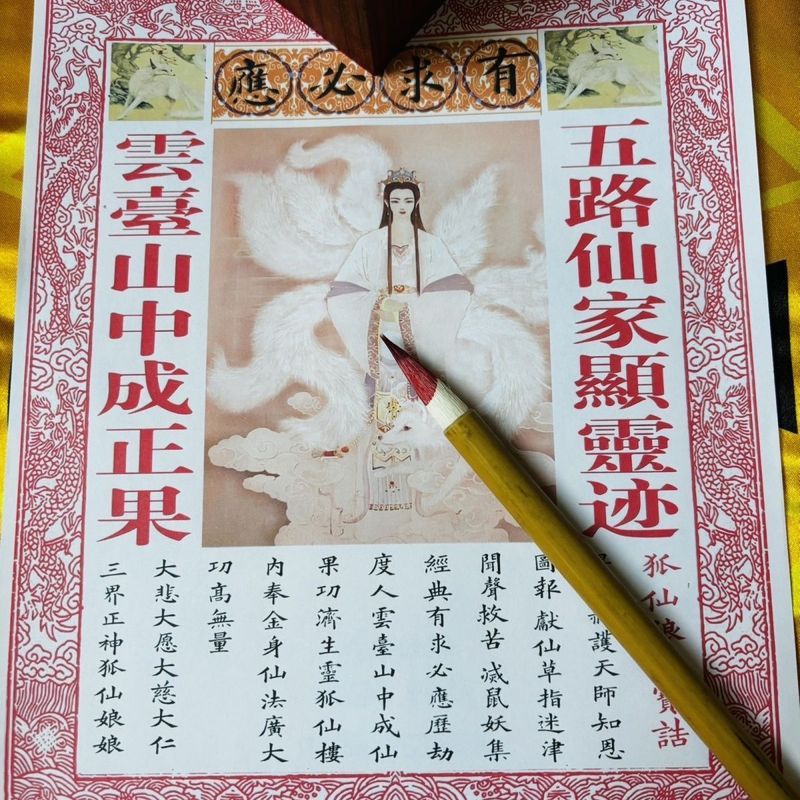 有求必應
五路仙家顯靈迹
雲臺山中成正果
狐仙娘寶誥
護天師知恩
圖報 獻仙草指迷津
聞聲救苦 滅鼠妖集
經典有求必應歷劫
度人雲臺山中成仙
果功濟生靈狐仙樓
內奉金身仙法廣大
功高無量
大悲大愿大慈大仁
三界正神狐仙娘娘